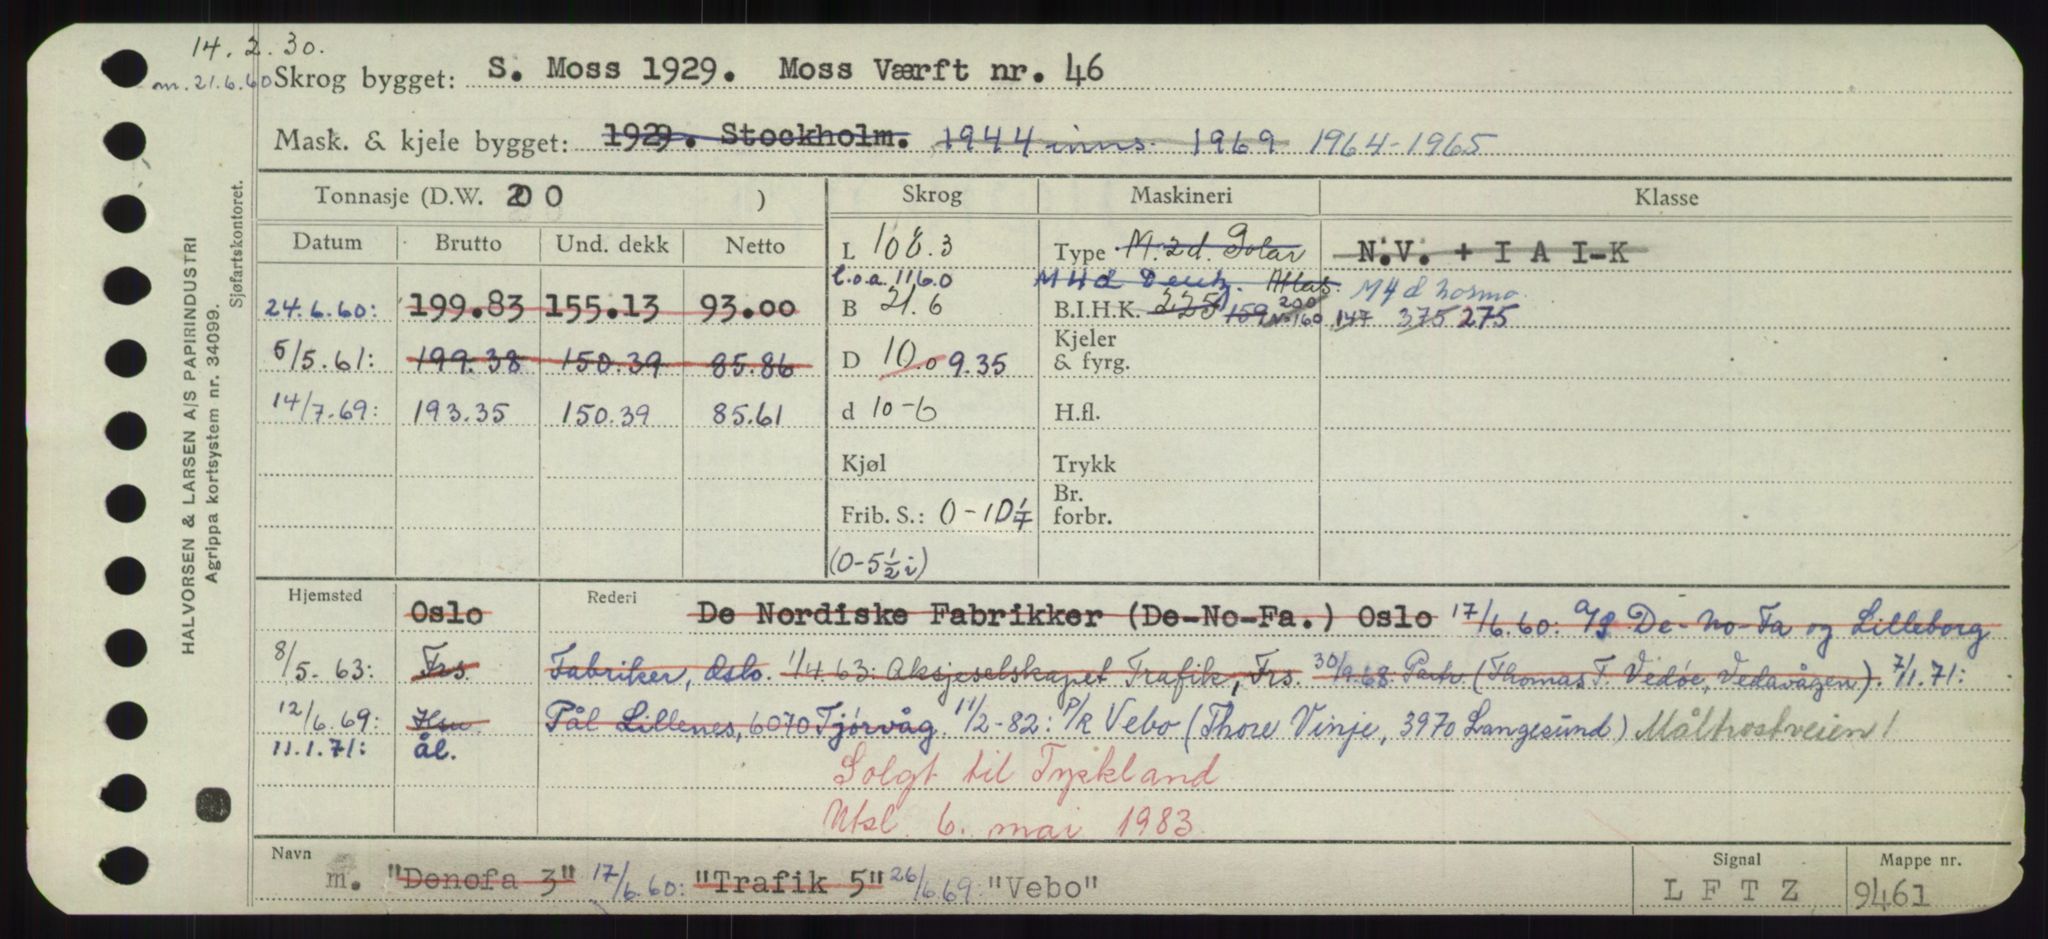 14.2.30.
m. 21.6.60 Skrog bygget: S. Moss 1929. Moss Værft nr. 46
Mask. & kjele bygget: 1929. Stockholm. 1944 inns. 1969 1964-1965
Tonnasje (D.W. 20 ) Skrog Maskineri Klasse
Datum Brutto Und. dekk Netto
L 108.3 Type M. 2d. Polar N.V. + I A I-K
l.o.a. 116.0 M 4 d Deutz. Atlas: M 4 d
24.6.60: 199.83 155.13 93.00 B 21.6 B.I.H.K. 225 159 200 160 147 375 275
5/5.61: 199.38 150.39 85.86 D 10.0 9.35 Kjeler & fyrg.
14/7.69: 193.35 150.39 85.61 d 10-6 H.fl.
Kjøl Trykk
Frib. S.: 0-10 1/4 Br. forbr.
(0-5 1/2 i)
Hjemsted Oslo Rederi De Nordiske Fabrikker (De-No-Fa.) Oslo 17/6.60: A/S De-No-Fa og Lilleborg
8/5-63: Frs. Fabriker, Oslo. 1/4 63: Aksjeselskapet Trafik, Frs. 30/9.68: Partr. (Thomas T. Vedøe, Vedavågen). 7/1.71:
12/6.69: Hsu Pål Lillenes, 6070 Tjørvåg. 11/2-82: P/R Vebo (Thore Vinje, 3970 Langesund) Måltrostveien 1
11.1.71: ål. Solgt til Tyskland
Utsl. 6. mai 1983.
Navn Signal Mappe nr.
m. "Denofa 3" 17/6.60: "Trafik 5" 26/6.69: "Vebo" L F T Z 9461
HALVORSEN & LARSEN A/S PAPIRINDUSTRI
Agrippa kortsystem nr. 34099.
Sjøfartskontoret.